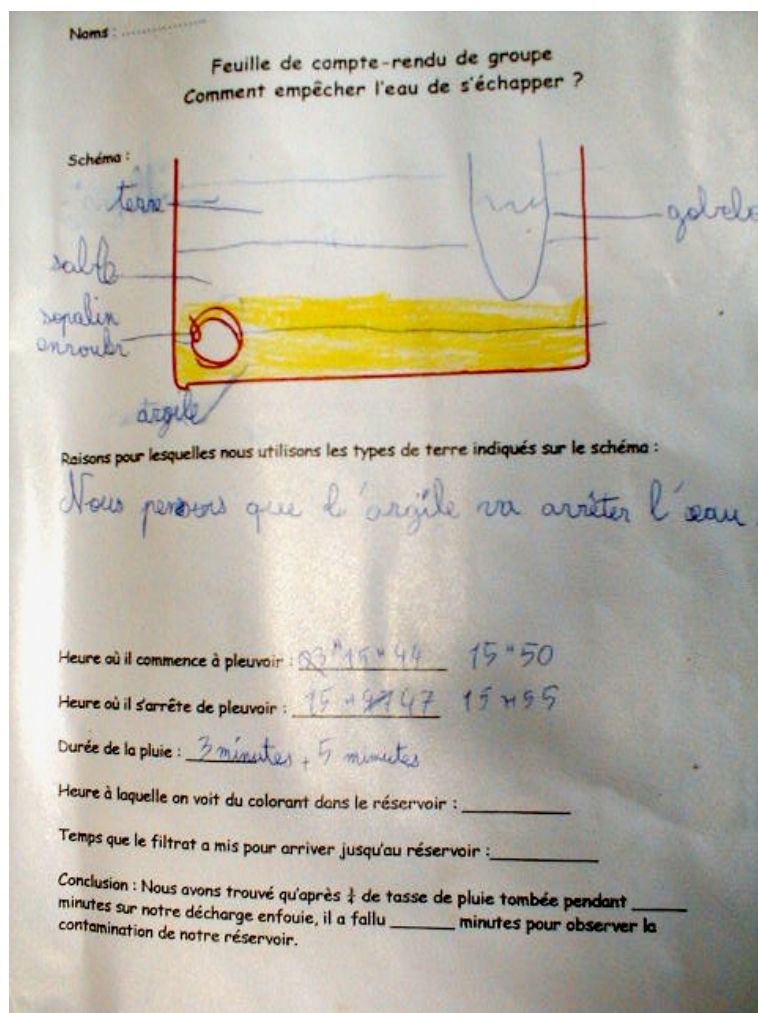 Noms : ...............
Feuille de compte-rendu de groupe
Comment empêcher l'eau de s'échapper ?
Schéma :
terre
gobele
sable
sopalin
enroulé
argile
Raisons pour lesquelles nous utilisons les types de terre indiqués sur le schéma :
Nous pensons que l'argile va arrêter l'eau.
Heure où il commence à pleuvoir : 15 H 44 15 H 50
Heure où il s'arrête de pleuvoir : 15 H 47 15 H 55
Durée de la pluie : 3 minutes + 5 minutes
Heure à laquelle on voit du colorant dans le réservoir : ________
Temps que le filtrat a mis pour arriver jusqu'au réservoir : ________
Conclusion : Nous avons trouvé qu'après ¼ de tasse de pluie tombée pendant ____
minutes sur notre décharge enfouie, il a fallu _____ minutes pour observer la
contamination de notre réservoir.